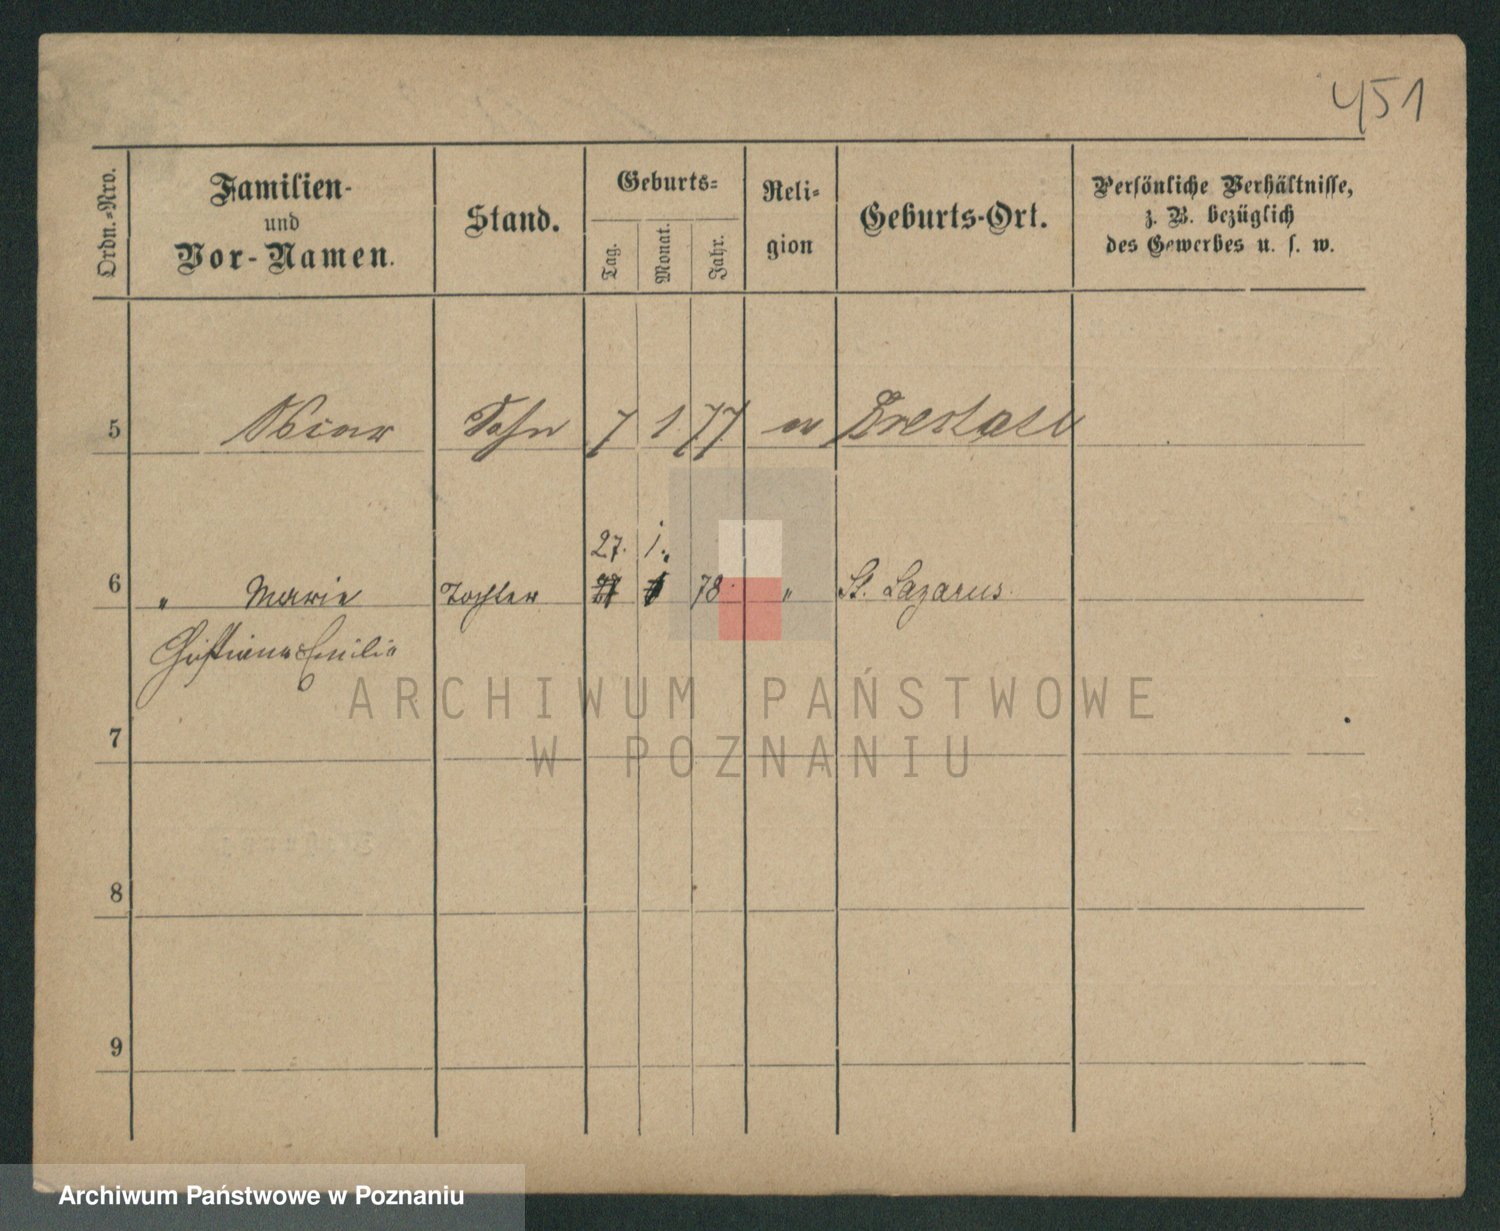 451
Ordn.-Nro.
Familien-
und
Vor-Namen.
Stand.
Geburts-
Tag.
Monat.
Jahr.
Reli-
gion
Geburts-Ort.
Persönliche Verhältnisse,
z. B. bezüglich
des Gewerbes u. s. w.
5 Sohn 7 1 77 ev
27. 1.
6 " Marie Tochter 78. " St. Lazarus.
Christiane Emilie
ARCHIWUM PAŃSTWOWE
W POZNANIU
7
8
9
Archiwum Państwowe w Poznaniu